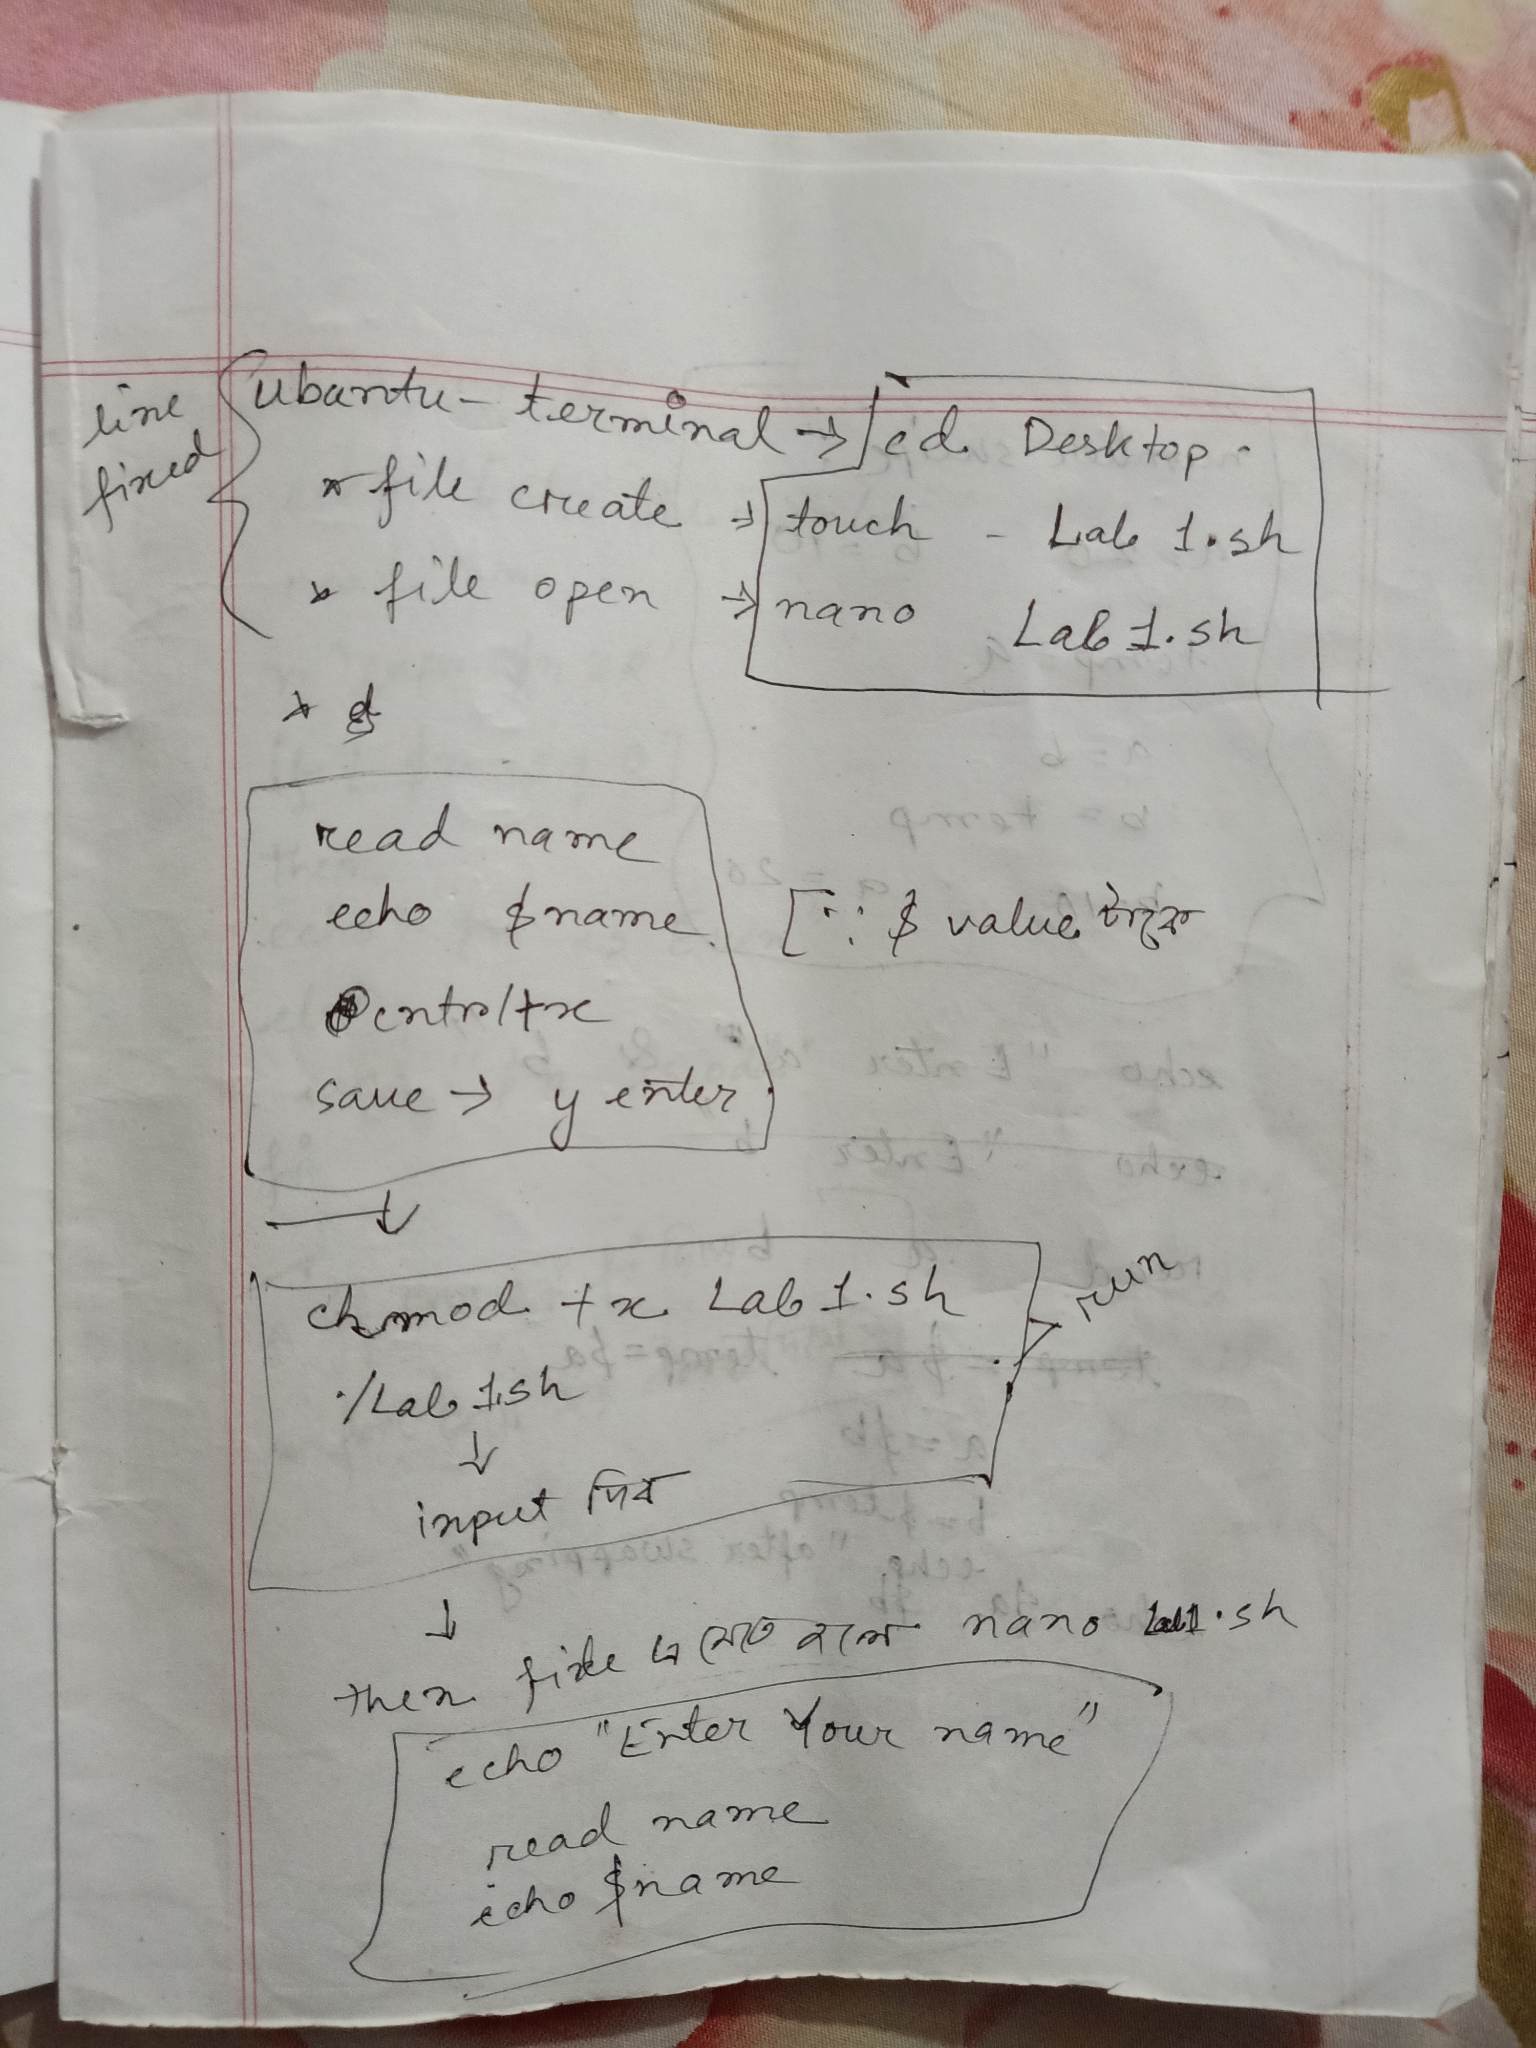 line fixed
ubantu - terminal → cd Desktop
* file create → touch - Lab 1.sh
* file open → nano Lab 1.sh
read name
echo $name [∵ $ value
cntrl+x
save → y enter
↓
chmod +x Lab 1.sh
./Lab 1.sh run
↓
input দিব
↓
then file এ যেতে হলে nano Lab1.sh
echo "Enter Your name"
read name
echo $name